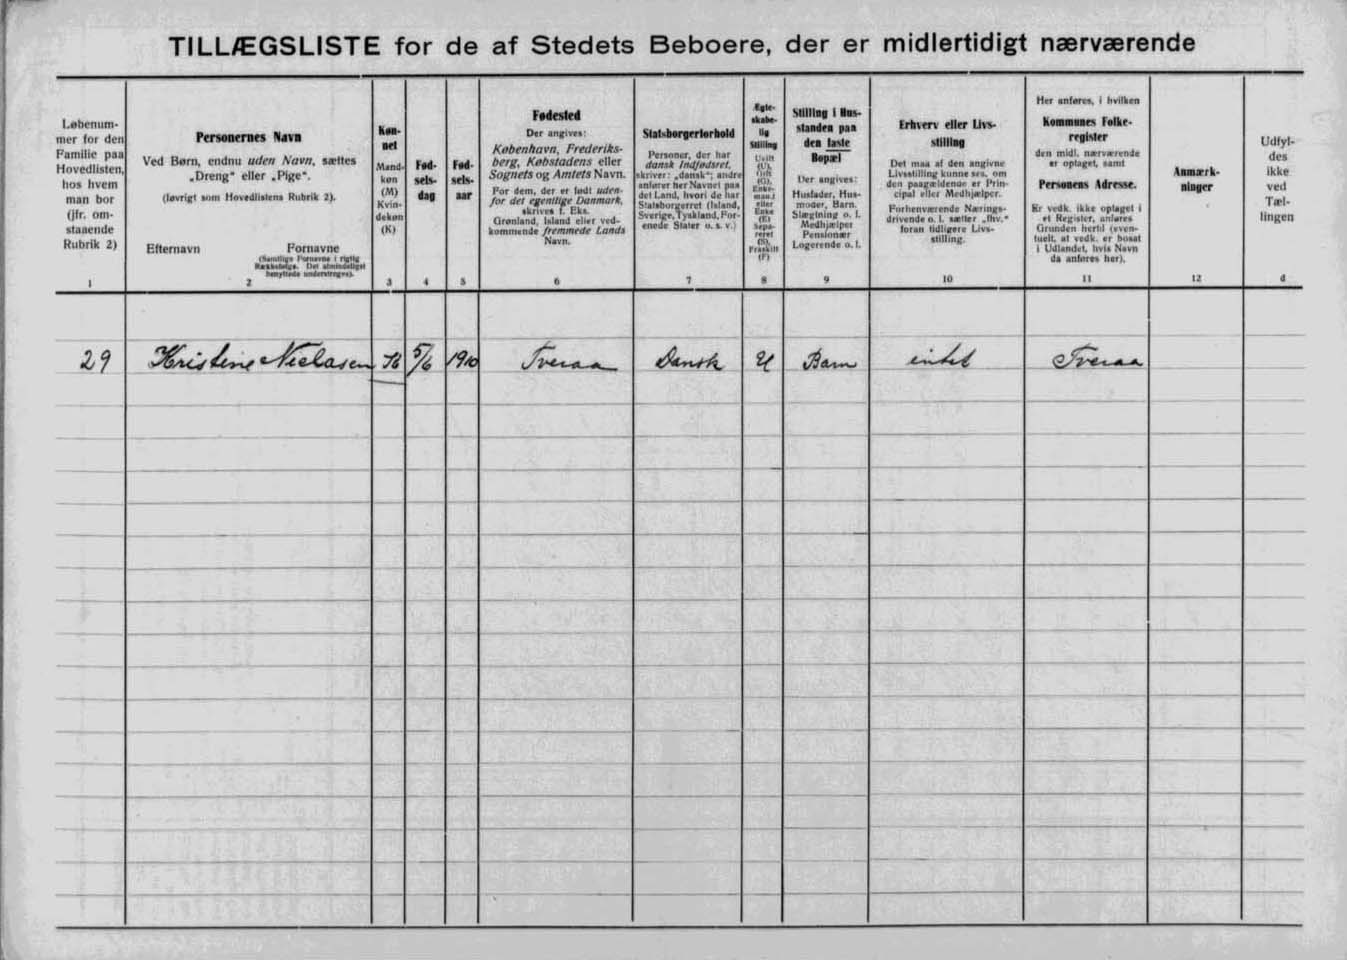 TILLÆGSLISTE for de af Stedets Beboere, der er midlertidigt nærværende
Løbenum-
mer for den
Familie paa
Hovedlisten,
hos hvem
man bor
(jfr. om-
staaende
Rubrik 2)
1
Personernes Navn
Ved Børn, endnu uden Navn, sættes
„Dreng“ eller „Pige“.
(Iøvrigt som Hovedlistens Rubrik 2).
Efternavn Fornavne
(Samtlige Fornavne i rigtig
Rækkefølge. Det almindeligst
benyttede understreges).
2
Køn-
net
Mand-
køn
(M)
Kvin-
dekøn
(K)
3
Fød-
sels-
dag
4
Fød-
sels-
aar
5
Fødested
Der angives:
København, Frederiks-
berg, Købstadens eller
Sognets og Amtets Navn.
For dem, der er født uden-
for det egentlige Danmark,
skrives f. Eks.
Grønland, Island eller ved-
kommende fremmede Lands
Navn.
6
Statsborgerforhold
Personer, der har
dansk Indfødsret,
skriver: „dansk“; andre
anfører her Navnet paa
det Land, hvori de har
Statsborgerret (Island,
Sverige, Tyskland, For-
enede Stater o. s. v.)
7
Ægte-
skabe-
lig
Stilling
Ugift
(U),
Gift
(G),
Enke-
mand
eller
Enke
(E)
Sepa-
reret
(S),
Fraskilt
(F)
8
Stilling i Hus-
standen paa
den faste
Bopæl
Der angives:
Husfader, Hus-
moder, Barn,
Slægtning o. l.
Medhjælper
Pensionær
Logerende o. l.
9
Erhverv eller Livs-
stilling
Det maa af den angivne
Livsstilling kunne ses, om
den paagældende er Prin-
cipal eller Medhjælper.
Forhenværende Nærings-
drivende o. l. sætter „fhv.“
foran tidligere Livs-
stilling.
10
Her anføres, i hvilken
Kommunes Folke-
register
den midl. nærværende
er optaget, samt
Personens Adresse.
Er vedk. ikke optaget i
et Register, anføres
Grunden hertil (even-
tuelt, at vedk. er bosat
i Udlandet, hvis Navn
da anføres her).
11
Anmærk-
ninger
12
Udfyl-
des
ikke
ved
Tæl-
lingen
d
29 Kristine Nielasen K 5/6 1910 Tveraa Dansk U Barn intet Tveraa